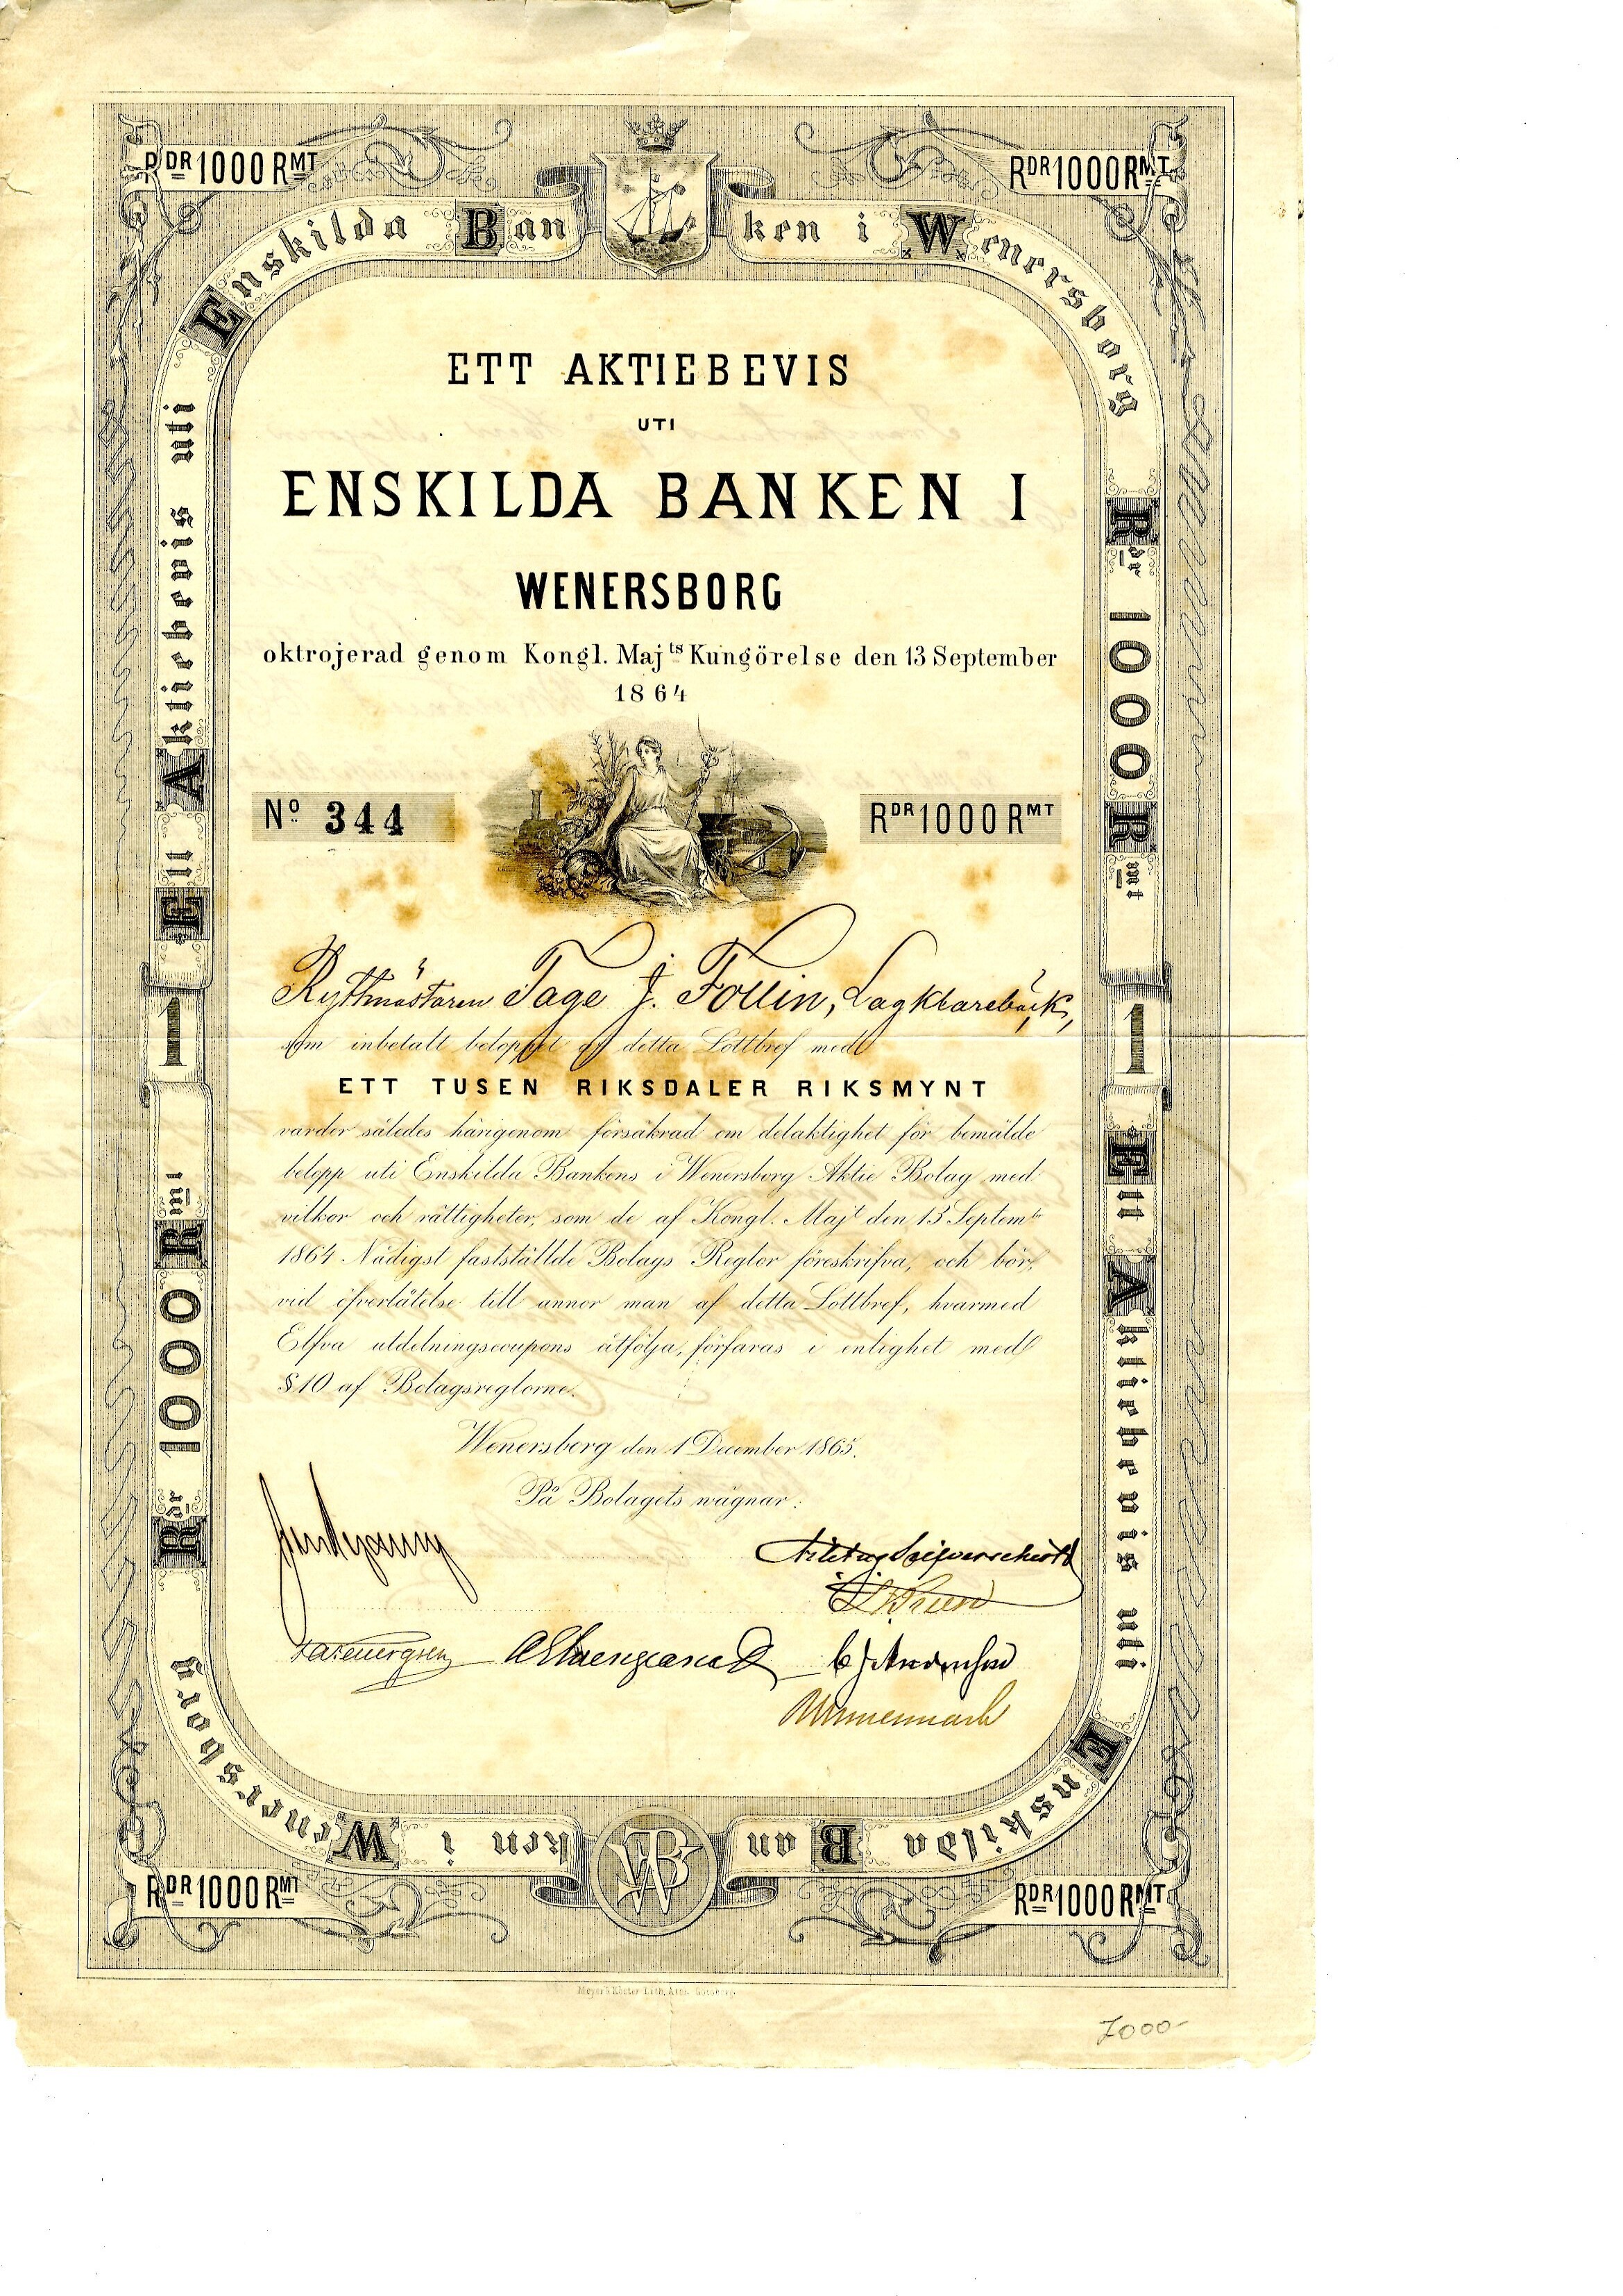 RDR 1000 RMT
RDR 1000 RMT
Enskilda Banken i Wenersborg
ETT AKTIEBEVIS
UTI
ENSKILDA BANKEN I
WENERSBORG
oktrojerad genom Kongl. Majts Kungörelse den 13 September
1864
No 344
RDR 1000 RMT
Ryttmästaren Tage J. Follin,
som inbetalt beloppet af detta Lottbref med
ETT TUSEN RIKSDALER RIKSMYNT
varder således härigenom försäkrad om delaktighet för bemälde
belopp uti Enskilda Bankens i Wenersborg Aktie Bolag med
vilkor och rättigheter, som de af Kongl. Majt den 13 Septembr
1864 Nådigst fastställde Bolags Reglor föreskrifva, och bör,
vid öfverlåtelse till annor man af detta Lottbref, hvarmed
Elfva utdelningscoupons åtfölja, förfaras i enlighet med
§ 10 af Bolagsreglorne.
Wenersborg den 1 December 1865.
På Bolagets wägnar:
Ett Aktiebevis uti
Rdr 1000 Rmt
1
1
Rdr 1000 Rmt
Ett Aktiebevis uti
Enskilda Banken i Wenersborg
WB
RDR 1000 RMT
RDR 1000 RMT
Meyer & Köster Lith. Atr. Göteborg.
7000-